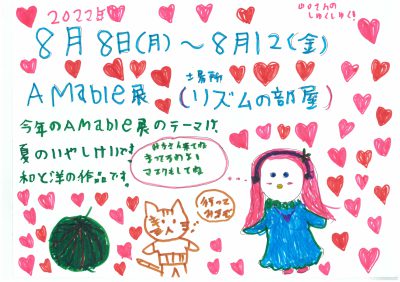 2022年
8月8日(月)～8月12(金)
AMabie展
場所
(リズムの部屋)
今年のAMabie展のテーマは、
夏のいやしけいです。
和と洋の作品です。
マスクをしてね
行って
みよう